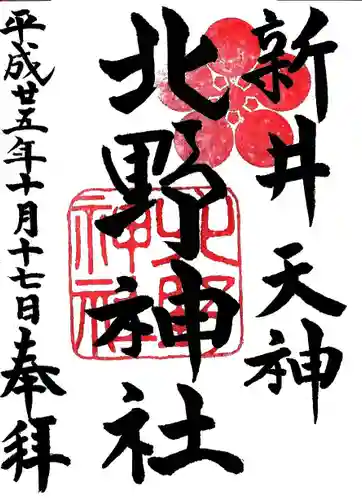 新井天神
北野神社
平成廿五年十月十七日奉拝
北野
神社